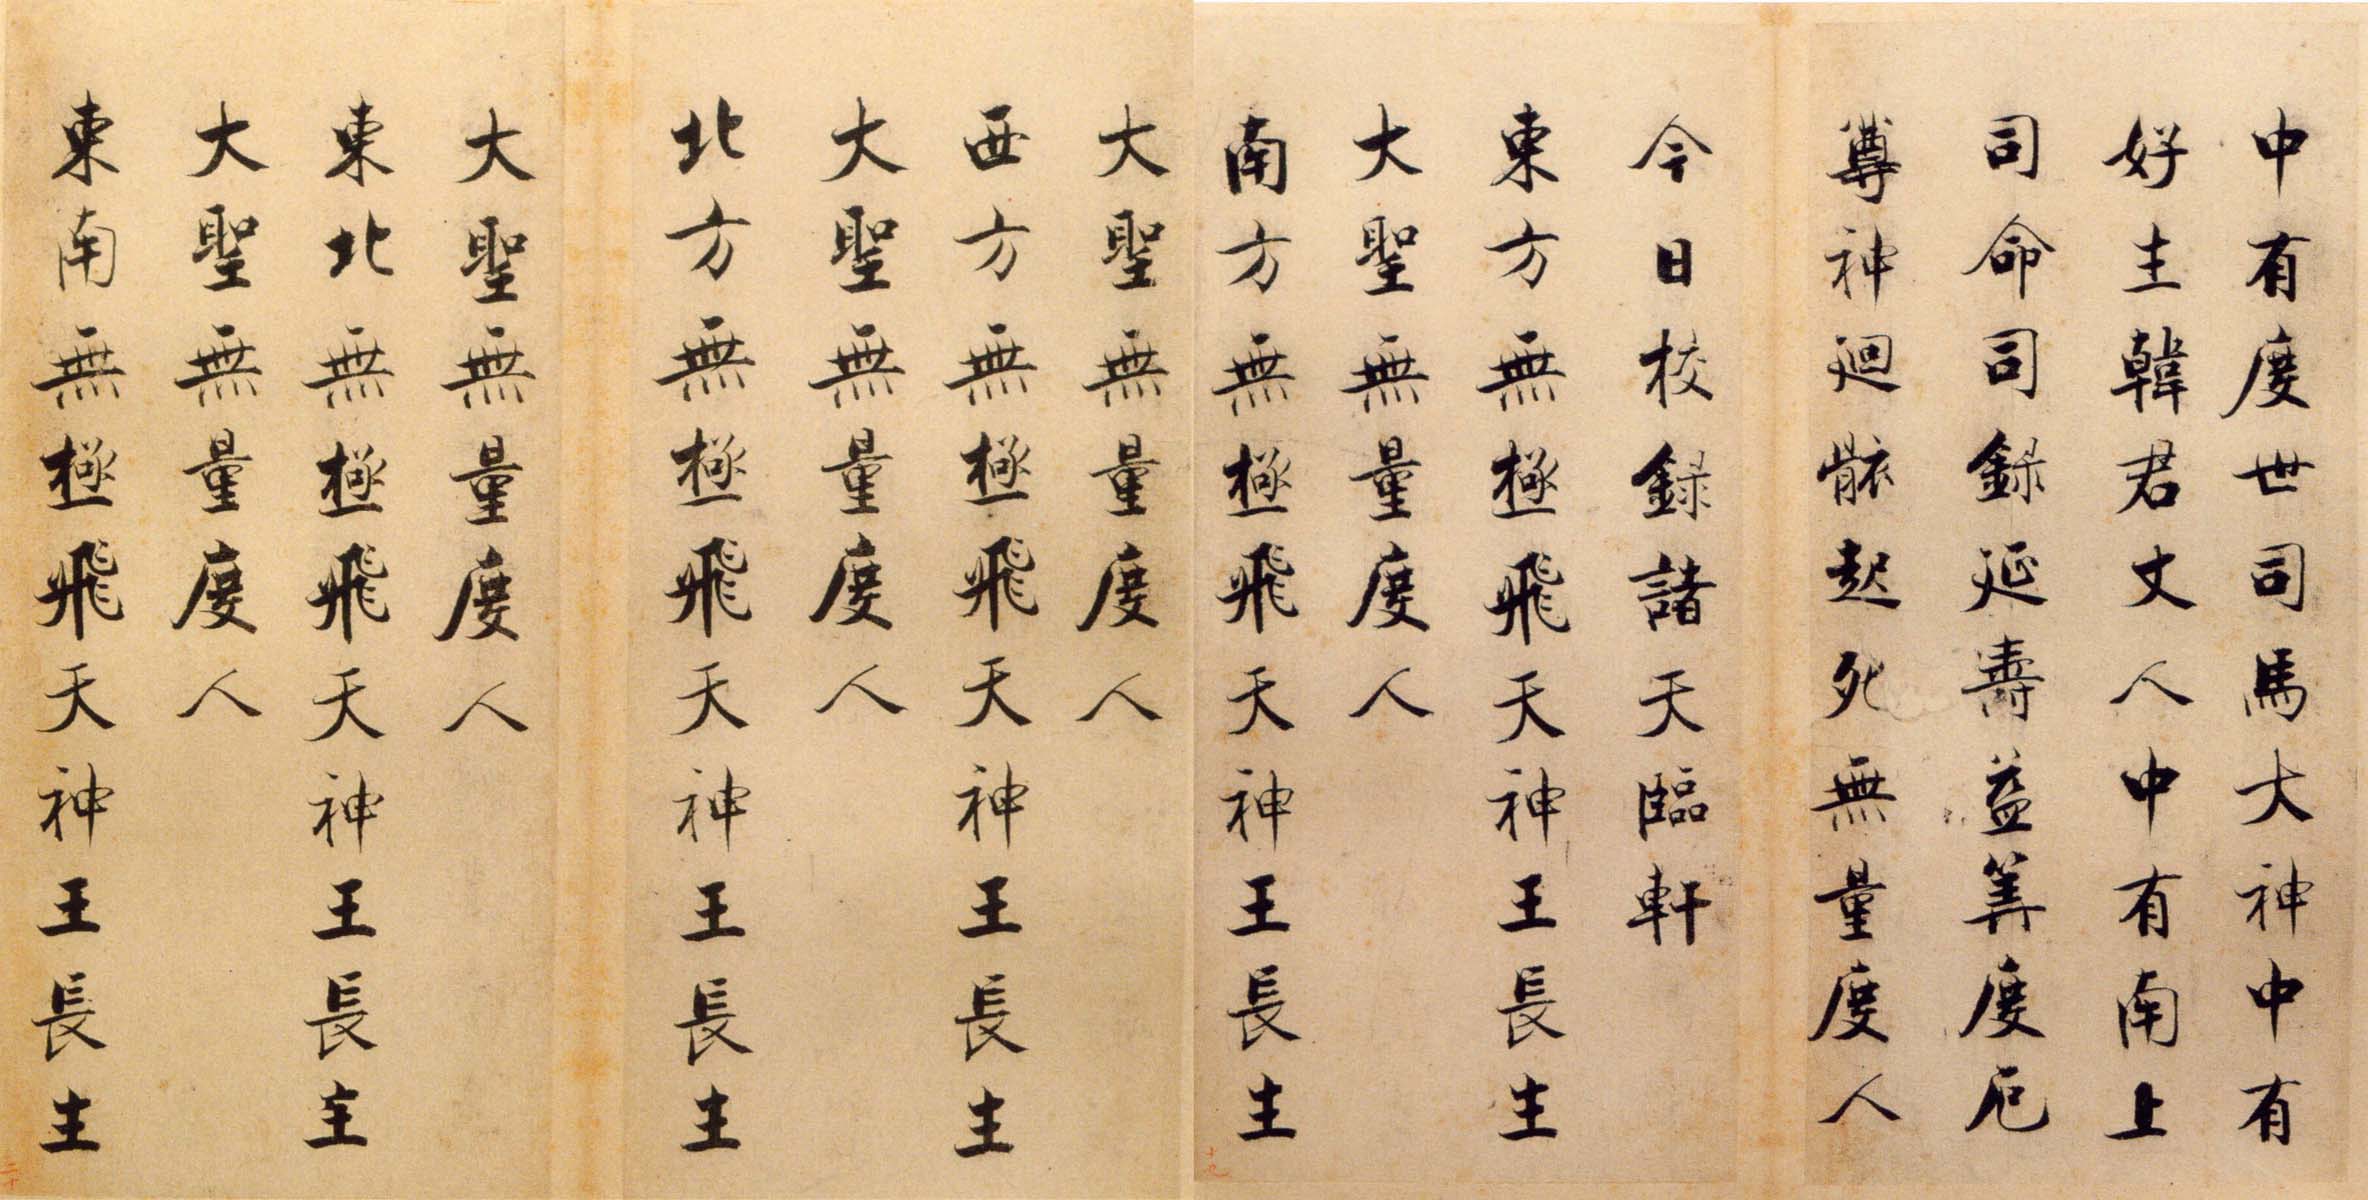 中有度世司馬大神中有
好生韓君丈人中有南上
司命司錄延壽益筭度厄
尊神迴骸起死無量度人
今日校錄諸天臨軒
東方無極飛天神王長生
大聖無量度人
南方無極飛天神王長生
大聖無量度人
西方無極飛天神王長生
大聖無量度人
北方無極飛天神王長生
大聖無量度人
東北無極飛天神王長生
大聖無量度人
東南無極飛天神王長生
十九
二十